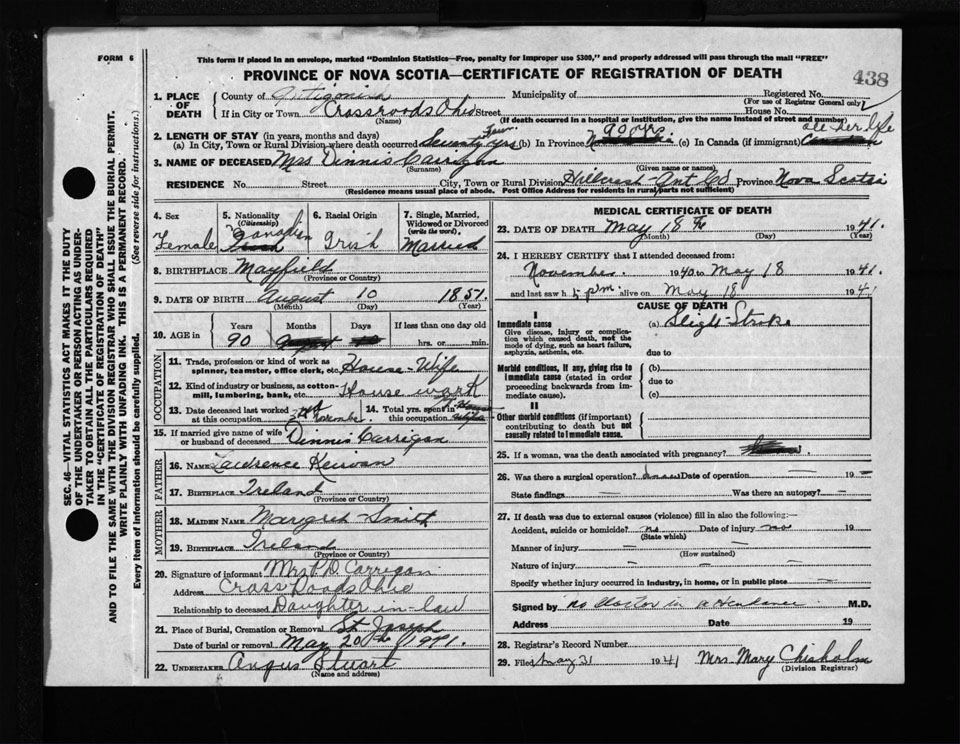 FORM 6
This form if placed in an envelope, marked "Dominion Statistics—Free, penalty for improper use $300," and properly addressed will pass through the mail "FREE"
PROVINCE OF NOVA SCOTIA—CERTIFICATE OF REGISTRATION OF DEATH
438
SEC. 46—VITAL STATISTICS ACT MAKES IT THE DUTY
OF THE UNDERTAKER OR PERSON ACTING AS UNDER-
TAKER TO OBTAIN ALL THE PARTICULARS REQUIRED
IN THE "CERTIFICATE OF REGISTRATION OF DEATH"
AND TO FILE THE SAME WITH THE DIVISION REGISTRAR WHO SHALL ISSUE THE BURIAL PERMIT.
WRITE PLAINLY WITH UNFADING INK. THIS IS A PERMANENT RECORD.
Every item of information should be carefully supplied. (See reverse side for instructions.)
1. PLACE OF DEATH
County of Antigonish Municipality of Registered No.
(For use of Registrar General only)
If in City or Town Crossroads Ohio Street House No.
(Name) (If death occurred in a hospital or institution, give the name instead of street and number)
2. LENGTH OF STAY (in years, months and days)
(a) In City, Town or Rural Division where death occurred Seventy four yrs (b) In Province 90 yrs (c) In Canada (if immigrant) all her life
3. NAME OF DECEASED Mrs. Dinnis Carrigan
(Surname) (Given name or names)
RESIDENCE No. Street City, Town or Rural Division Hillcrest Ant Co Province Nova Scotia
(Residence means usual place of abode. Post Office Address for residents in rural parts not sufficient)
4. Sex Female
5. Nationality (Citizenship) Canadian
6. Racial Origin Irish
7. Single, Married, Widowed or Divorced (write the word) Married
8. BIRTHPLACE Mayfield
(Province or Country)
9. DATE OF BIRTH August 10 1851
(Month) (Day) (Year)
10. AGE in Years 90 Months Days If less than one day old hrs. or min.
OCCUPATION
11. Trade, profession or kind of work as spinner, teamster, office clerk, etc. House-Wife
12. Kind of industry or business, as cotton-mill, lumbering, bank, etc. House work
13. Date deceased last worked at this occupation November
14. Total yrs. spent in this occupation
15. If married give name of wife or husband of deceased Dinnis Carrigan
FATHER
16. NAME Lawrence Keirvan
17. BIRTHPLACE Ireland
(Province or Country)
MOTHER
18. MAIDEN NAME Margret Smith
19. BIRTHPLACE Ireland
(Province or Country)
20. Signature of informant Mrs P.D. Carrigan
Address Cross Roads Ohio
Relationship to deceased Daughter-in-law
21. Place of Burial, Cremation or Removal St Joseph
Date of burial or removal May 20th 1941.
22. UNDERTAKER Angus Stuart
(Name and address)
MEDICAL CERTIFICATE OF DEATH
23. DATE OF DEATH May 18th 1941.
(Month) (Day) (Year)
24. I HEREBY CERTIFY that I attended deceased from:
November. 1940 to May 18 1941.
and last saw h alive on May 18 1941
CAUSE OF DEATH
I
Immediate cause
Give disease, injury or complication which caused death, not the mode of dying, such as heart failure, asphyxia, asthenia, etc.
(a) Sligh-Stroke
due to
Morbid conditions, if any, giving rise to immediate cause (stated in order proceeding backwards from immediate cause).
(b)
due to
(c)
II
Other morbid conditions (if important) contributing to death but not causally related to immediate cause.
25. If a woman, was the death associated with pregnancy?
26. Was there a surgical operation? Date of operation — 19—
State findings — Was there an autopsy? —
27. If death was due to external causes (violence) fill in also the following:—
Accident, suicide or homicide? no Date of injury no 19
(State which)
Manner of injury —
(How sustained)
Nature of injury —
Specify whether injury occurred in industry, in home, or in public place —
Signed by no doctor in attendance M.D.
Address Date 19
28. Registrar's Record Number
29. Filed May 31 1941 Mrs. Mary Chisholm
(Division Registrar)